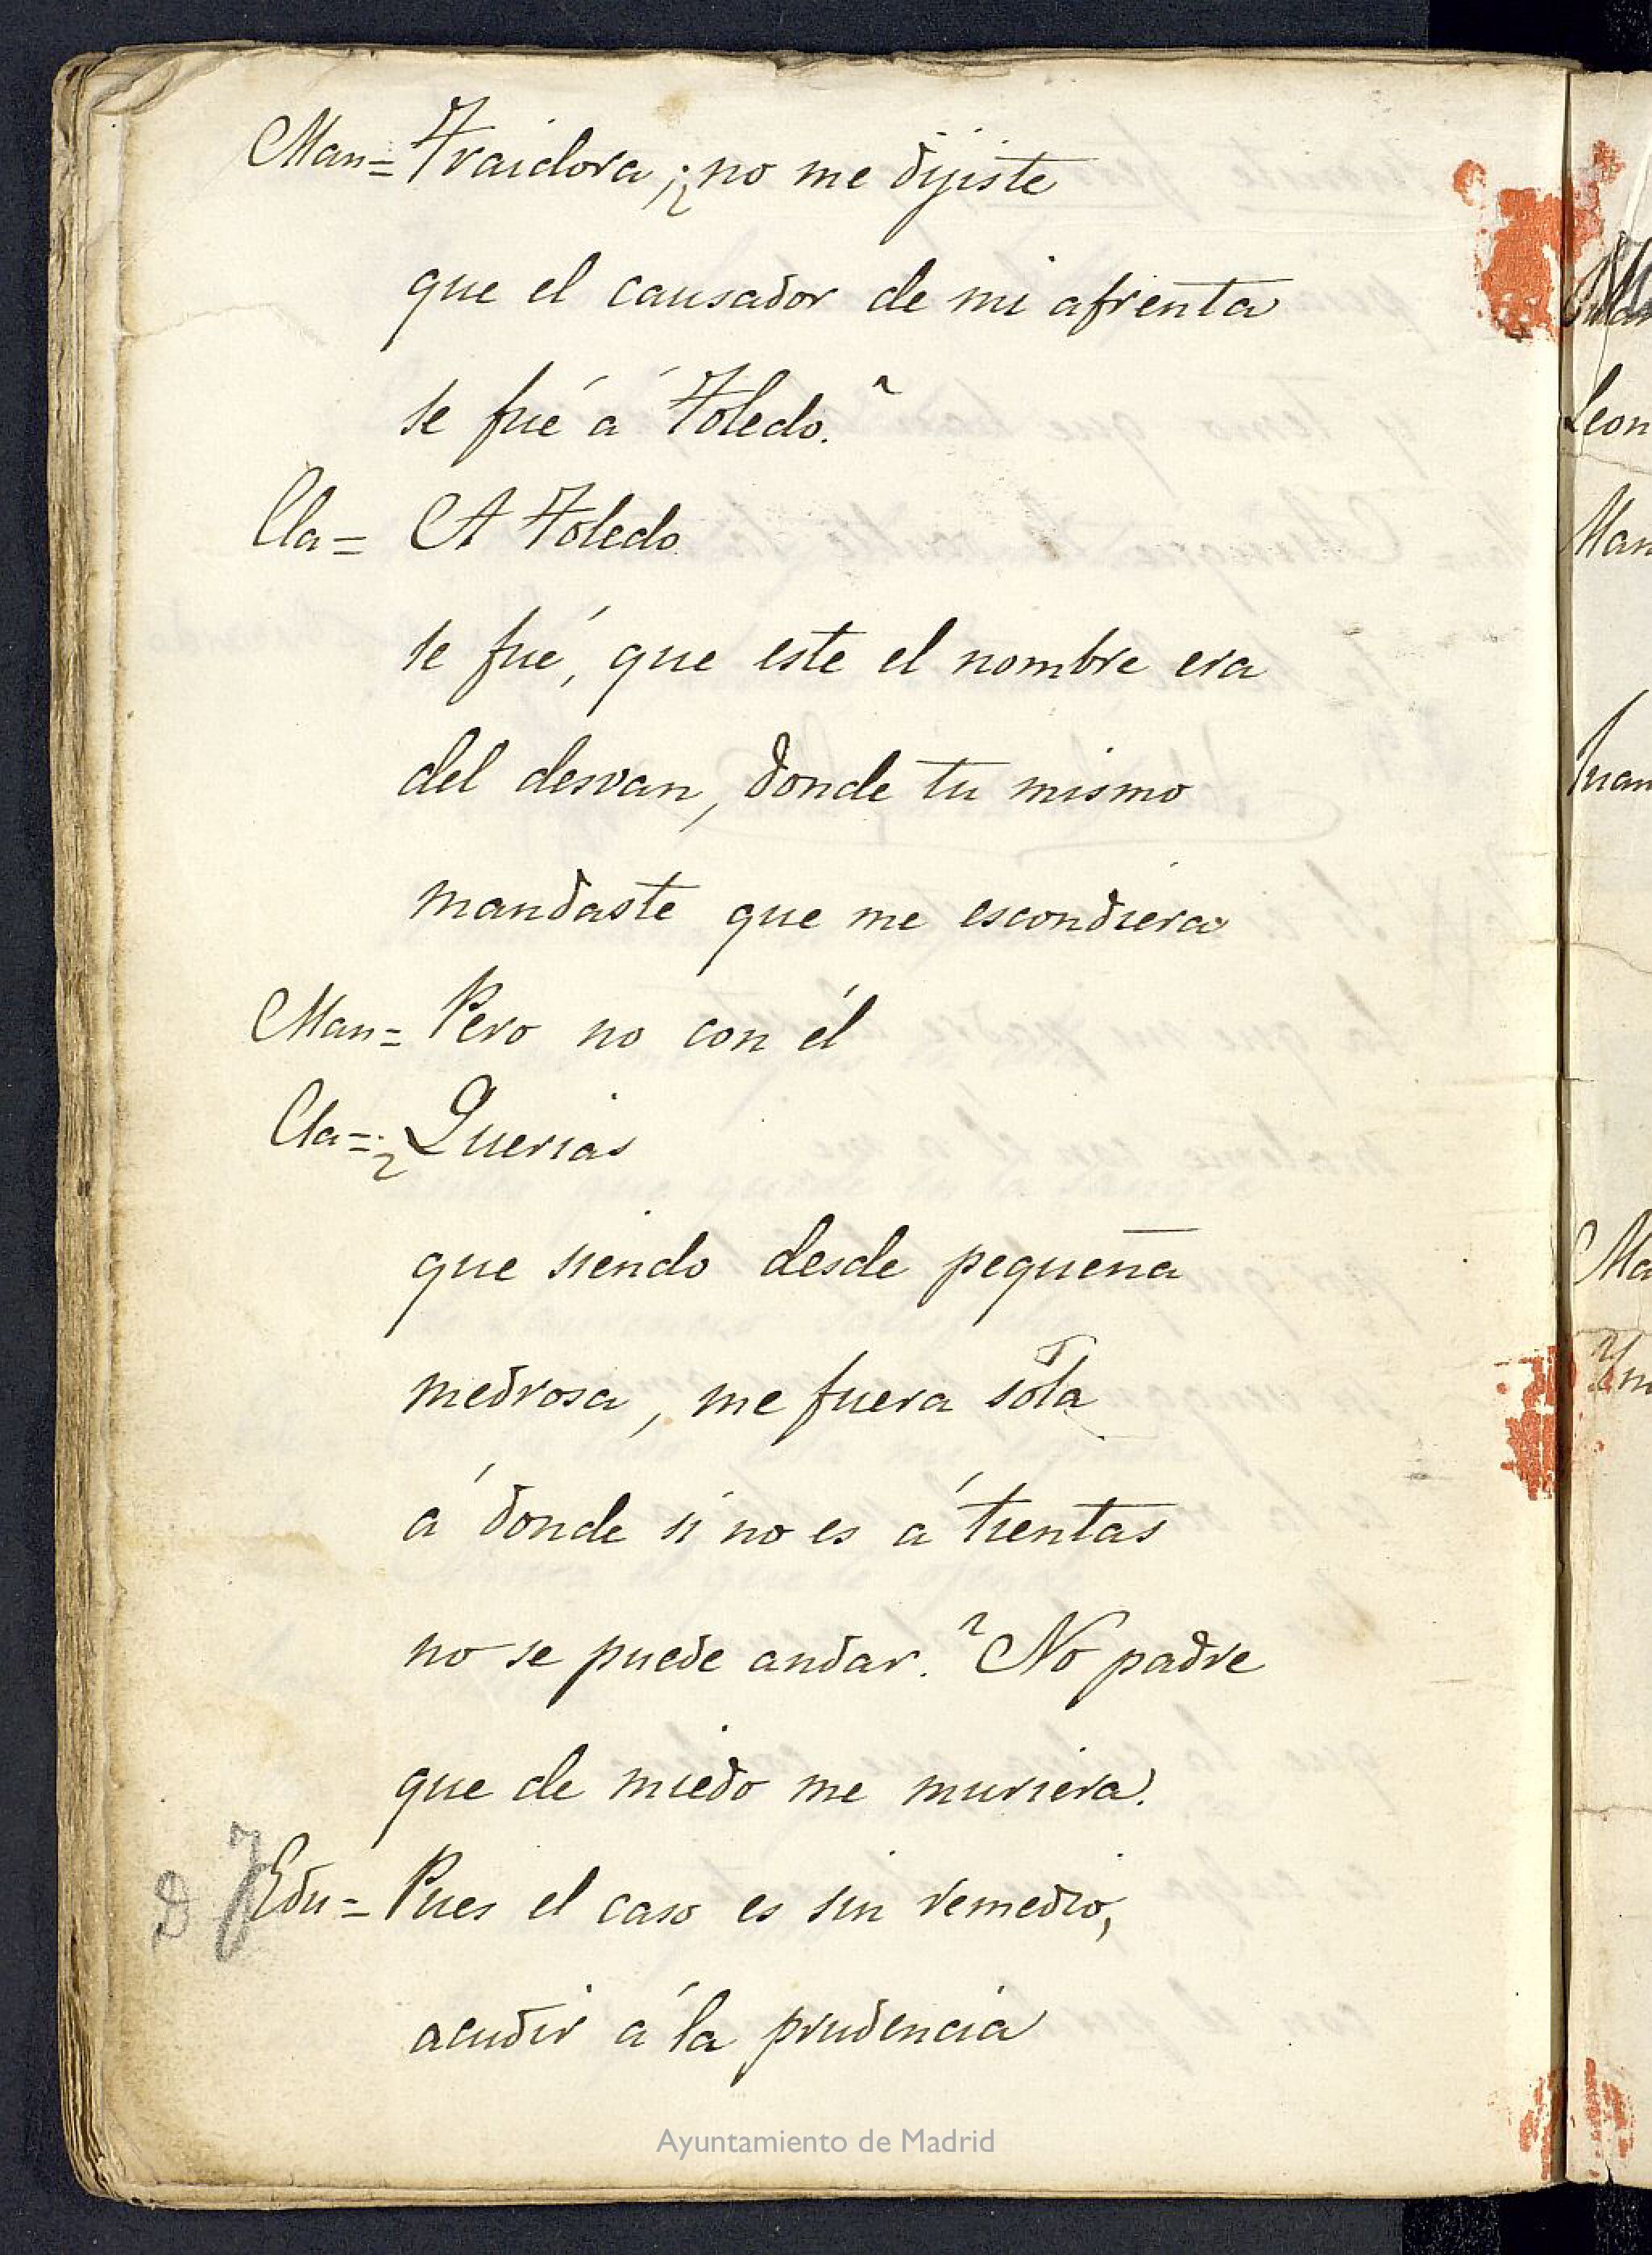 Man= Traidora, ¿no me dijiste
que el causador de mi afrenta
se fué á Toledo.?
Cla= A Toledo
se fué, que este el nombre era
del desvan, donde tu mismo
mandaste que me escondiera
Man= Pero no con él
Cla= ¿Querias
que siendo desde pequeña
medrosa, me fuera sola
á donde si no es á tientas
no se puede andar.? No padre
que de miedo me muriera.
D J Edu= Pues el caso es sin remedio,
acudir á la prudencia
Ayuntamiento de Madrid
Leon
Man
Juan
Ma